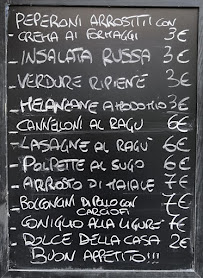 PEPERONI ARROSTITI CON
- CREMA AI FORMAGGI 3€
- INSALATA RUSSA 3€
- VERDURE RIPIENE 3€
- MELANZANE A FODOMIO 3€
- CANNELONI AL RAGU 6€
- LASAGNE AL RAGÙ 6€
- POLPETTE AL SUGO 6€
- ARROSTO DI MAIALE 7€
- BOCCONCINI DI POLLO CON
CARCIOFI 7€
- CONIGLIO ALLA LIGURE 7€
- DOLCE DELLA CASA 2€
BUON APPETITO!!!